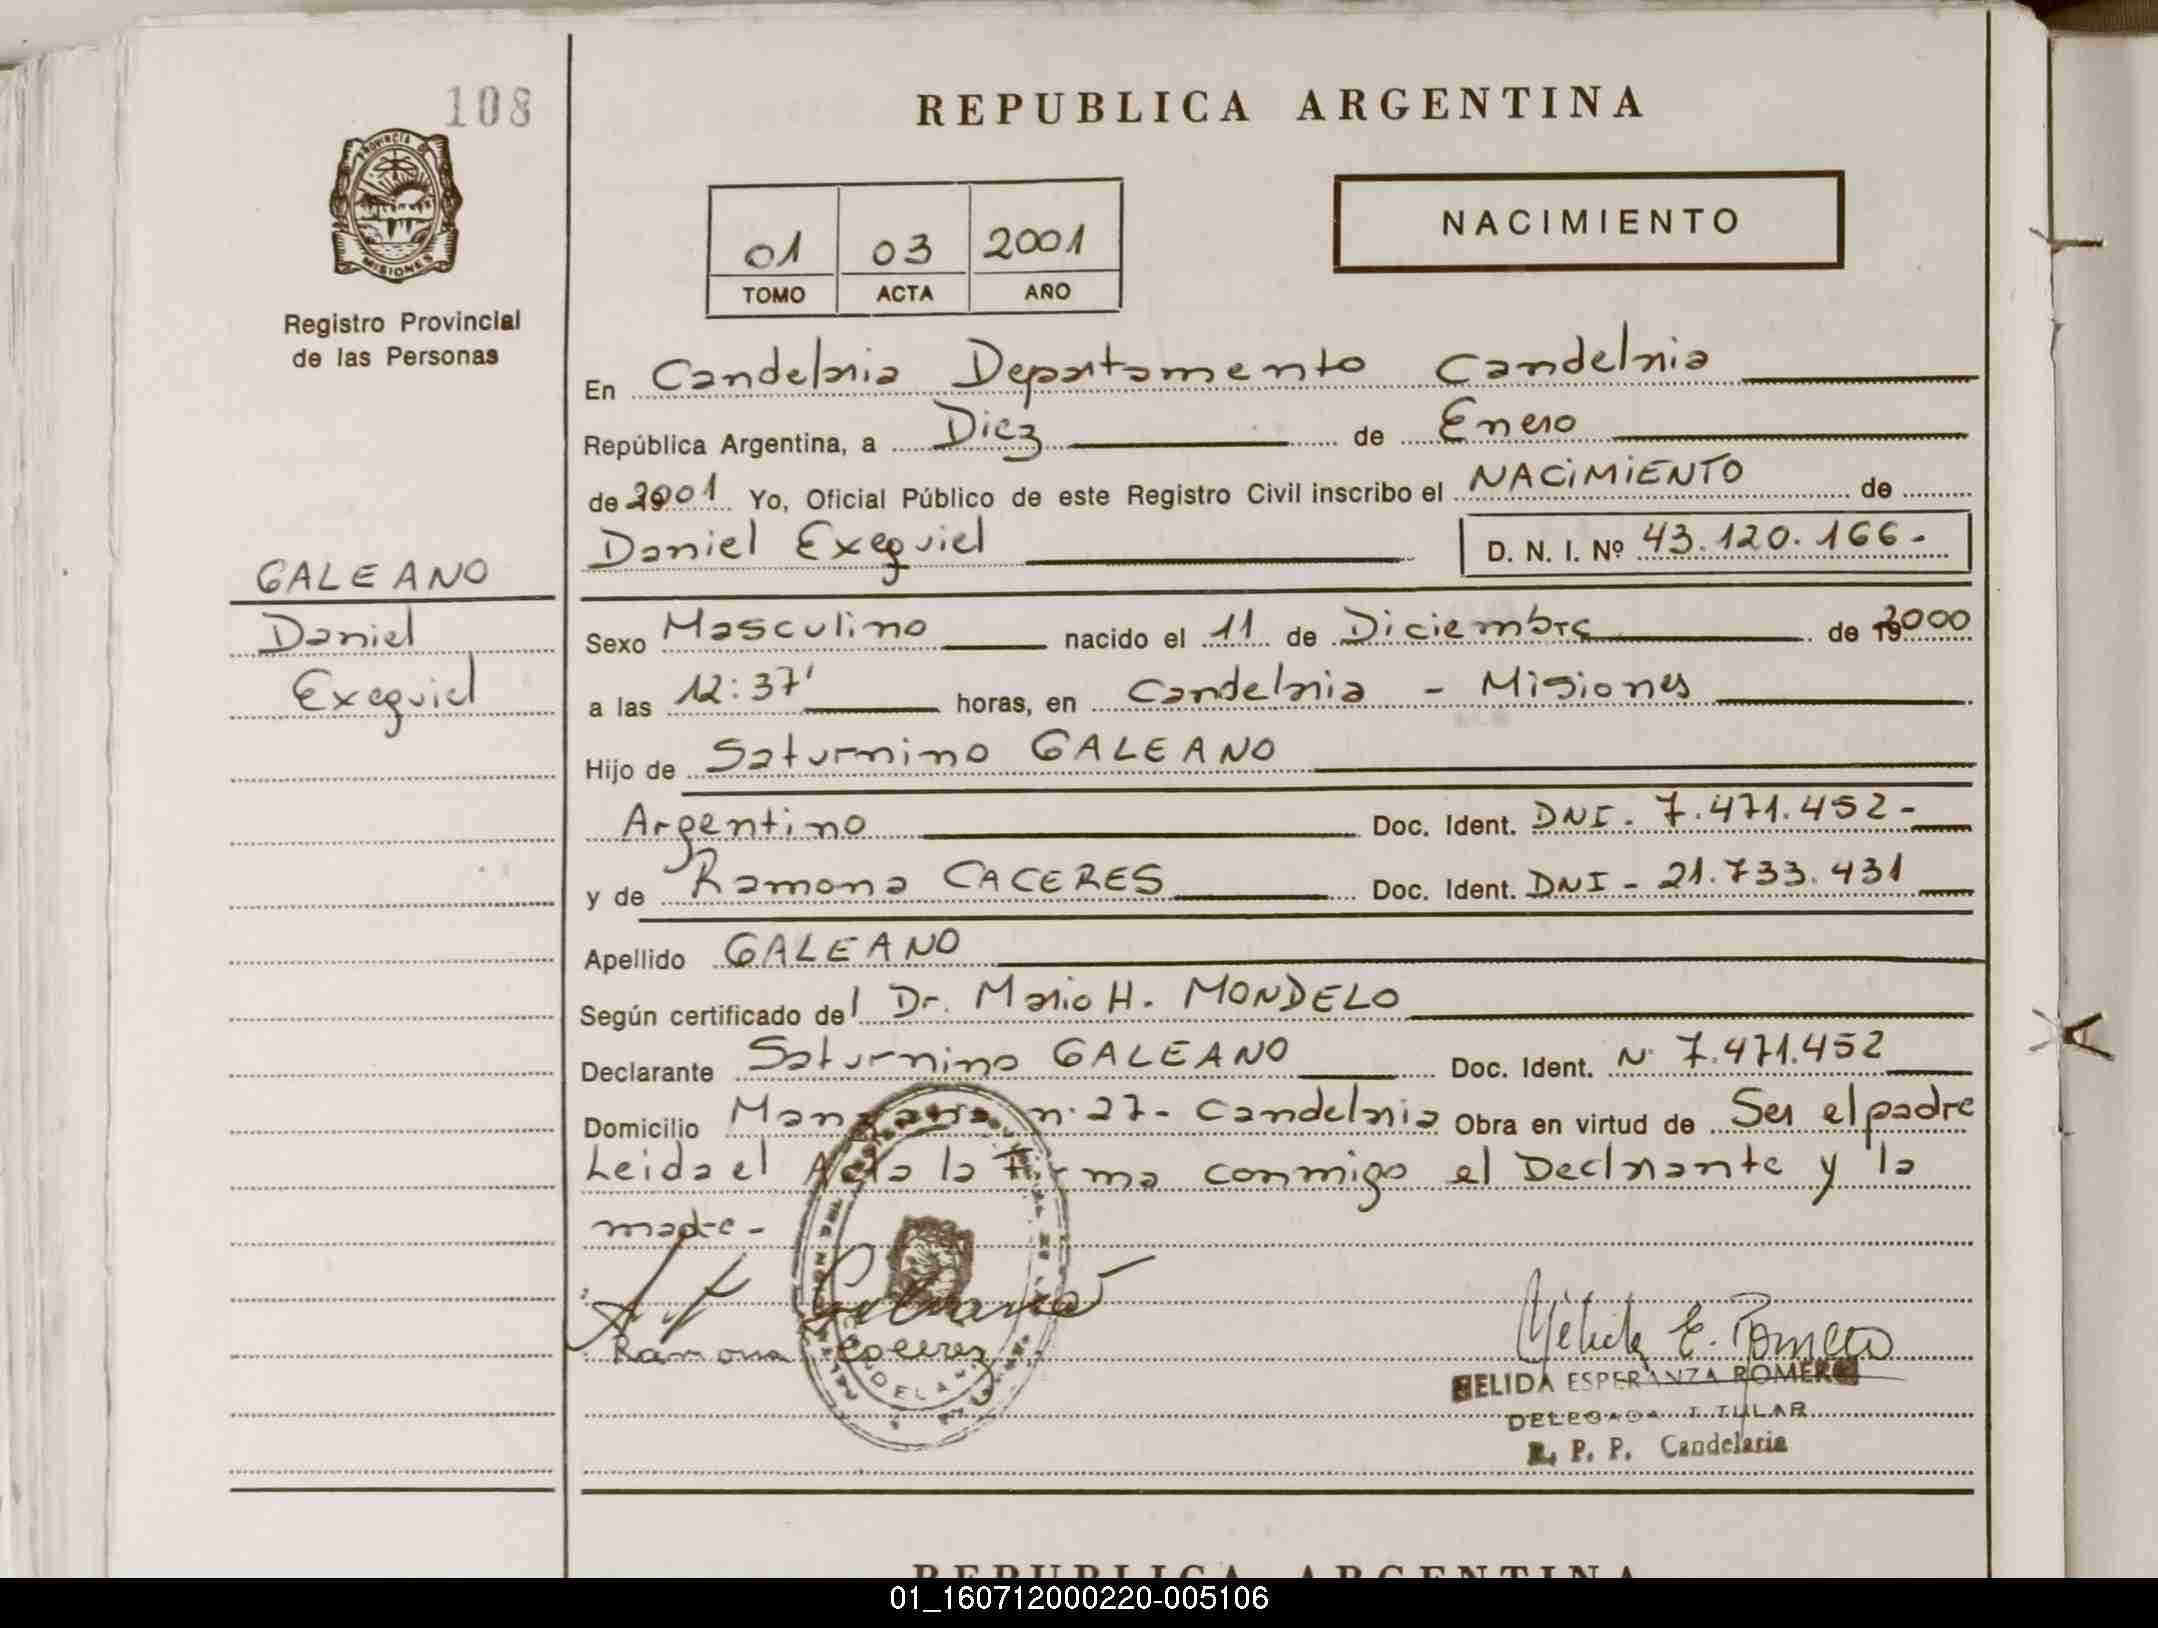 108
PROVINCIA DE
MISIONES
Registro Provincial
de las Personas
GALEANO
Daniel
Exequiel
REPUBLICA ARGENTINA
01 03 2001
TOMO ACTA AÑO
NACIMIENTO
En Candelaria Departamento Candelaria
República Argentina, a Diez de Enero
de 2001 Yo, Oficial Público de este Registro Civil inscribo el NACIMIENTO de
Daniel Exequiel D. N. I. Nº 43.120.166.-
Sexo Masculino nacido el 11 de Diciembre de 2000
a las 12:37' horas, en Candelaria - Misiones
Hijo de Saturnino GALEANO
Argentino Doc. Ident. DNI. 7.471.452-
y de Ramona CACERES Doc. Ident. DNI - 21.733.431
Apellido GALEANO
Según certificado del Dr. Mario H. MONDELO
Declarante Saturnino GALEANO Doc. Ident. N. 7.471.452
Domicilio Manzana n. 27- Candelaria Obra en virtud de Ser el padre
Leida el Acta la Firma conmigo el Declarante y la
madre-
Ramona Caceres
Nélida E. Romero
NELIDA ESPERANZA ROMERO
DELEGADA TITULAR
R. P. P. Candelaria
REPUBLICA ARGENTINA
01_160712000220-005106